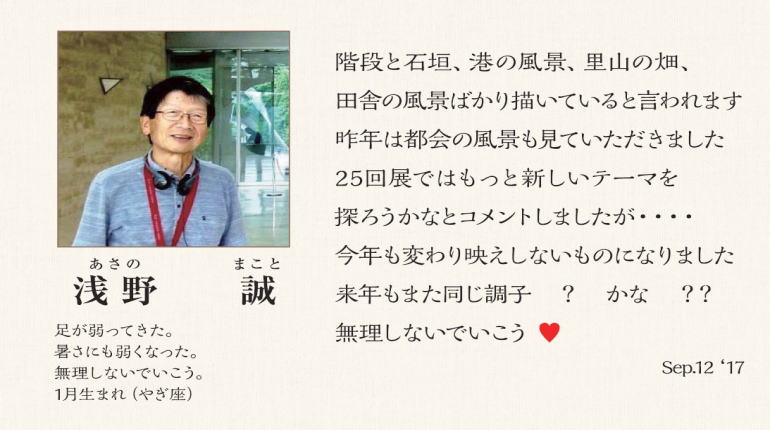 階段と石垣、港の風景、里山の畑、
田舎の風景ばかり描いていると言われます
昨年は都会の風景も見ていただきました
25回展ではもっと新しいテーマを
探ろうかなとコメントしましたが・・・・
今年も変わり映えしないものになりました
来年もまた同じ調子　？　かな　？？
無理しないでいこう ♥
Sep.12 ‘17
あさの　まこと
浅野　誠
足が弱ってきた。
暑さにも弱くなった。
無理しないでいこう。
1月生まれ（やぎ座）